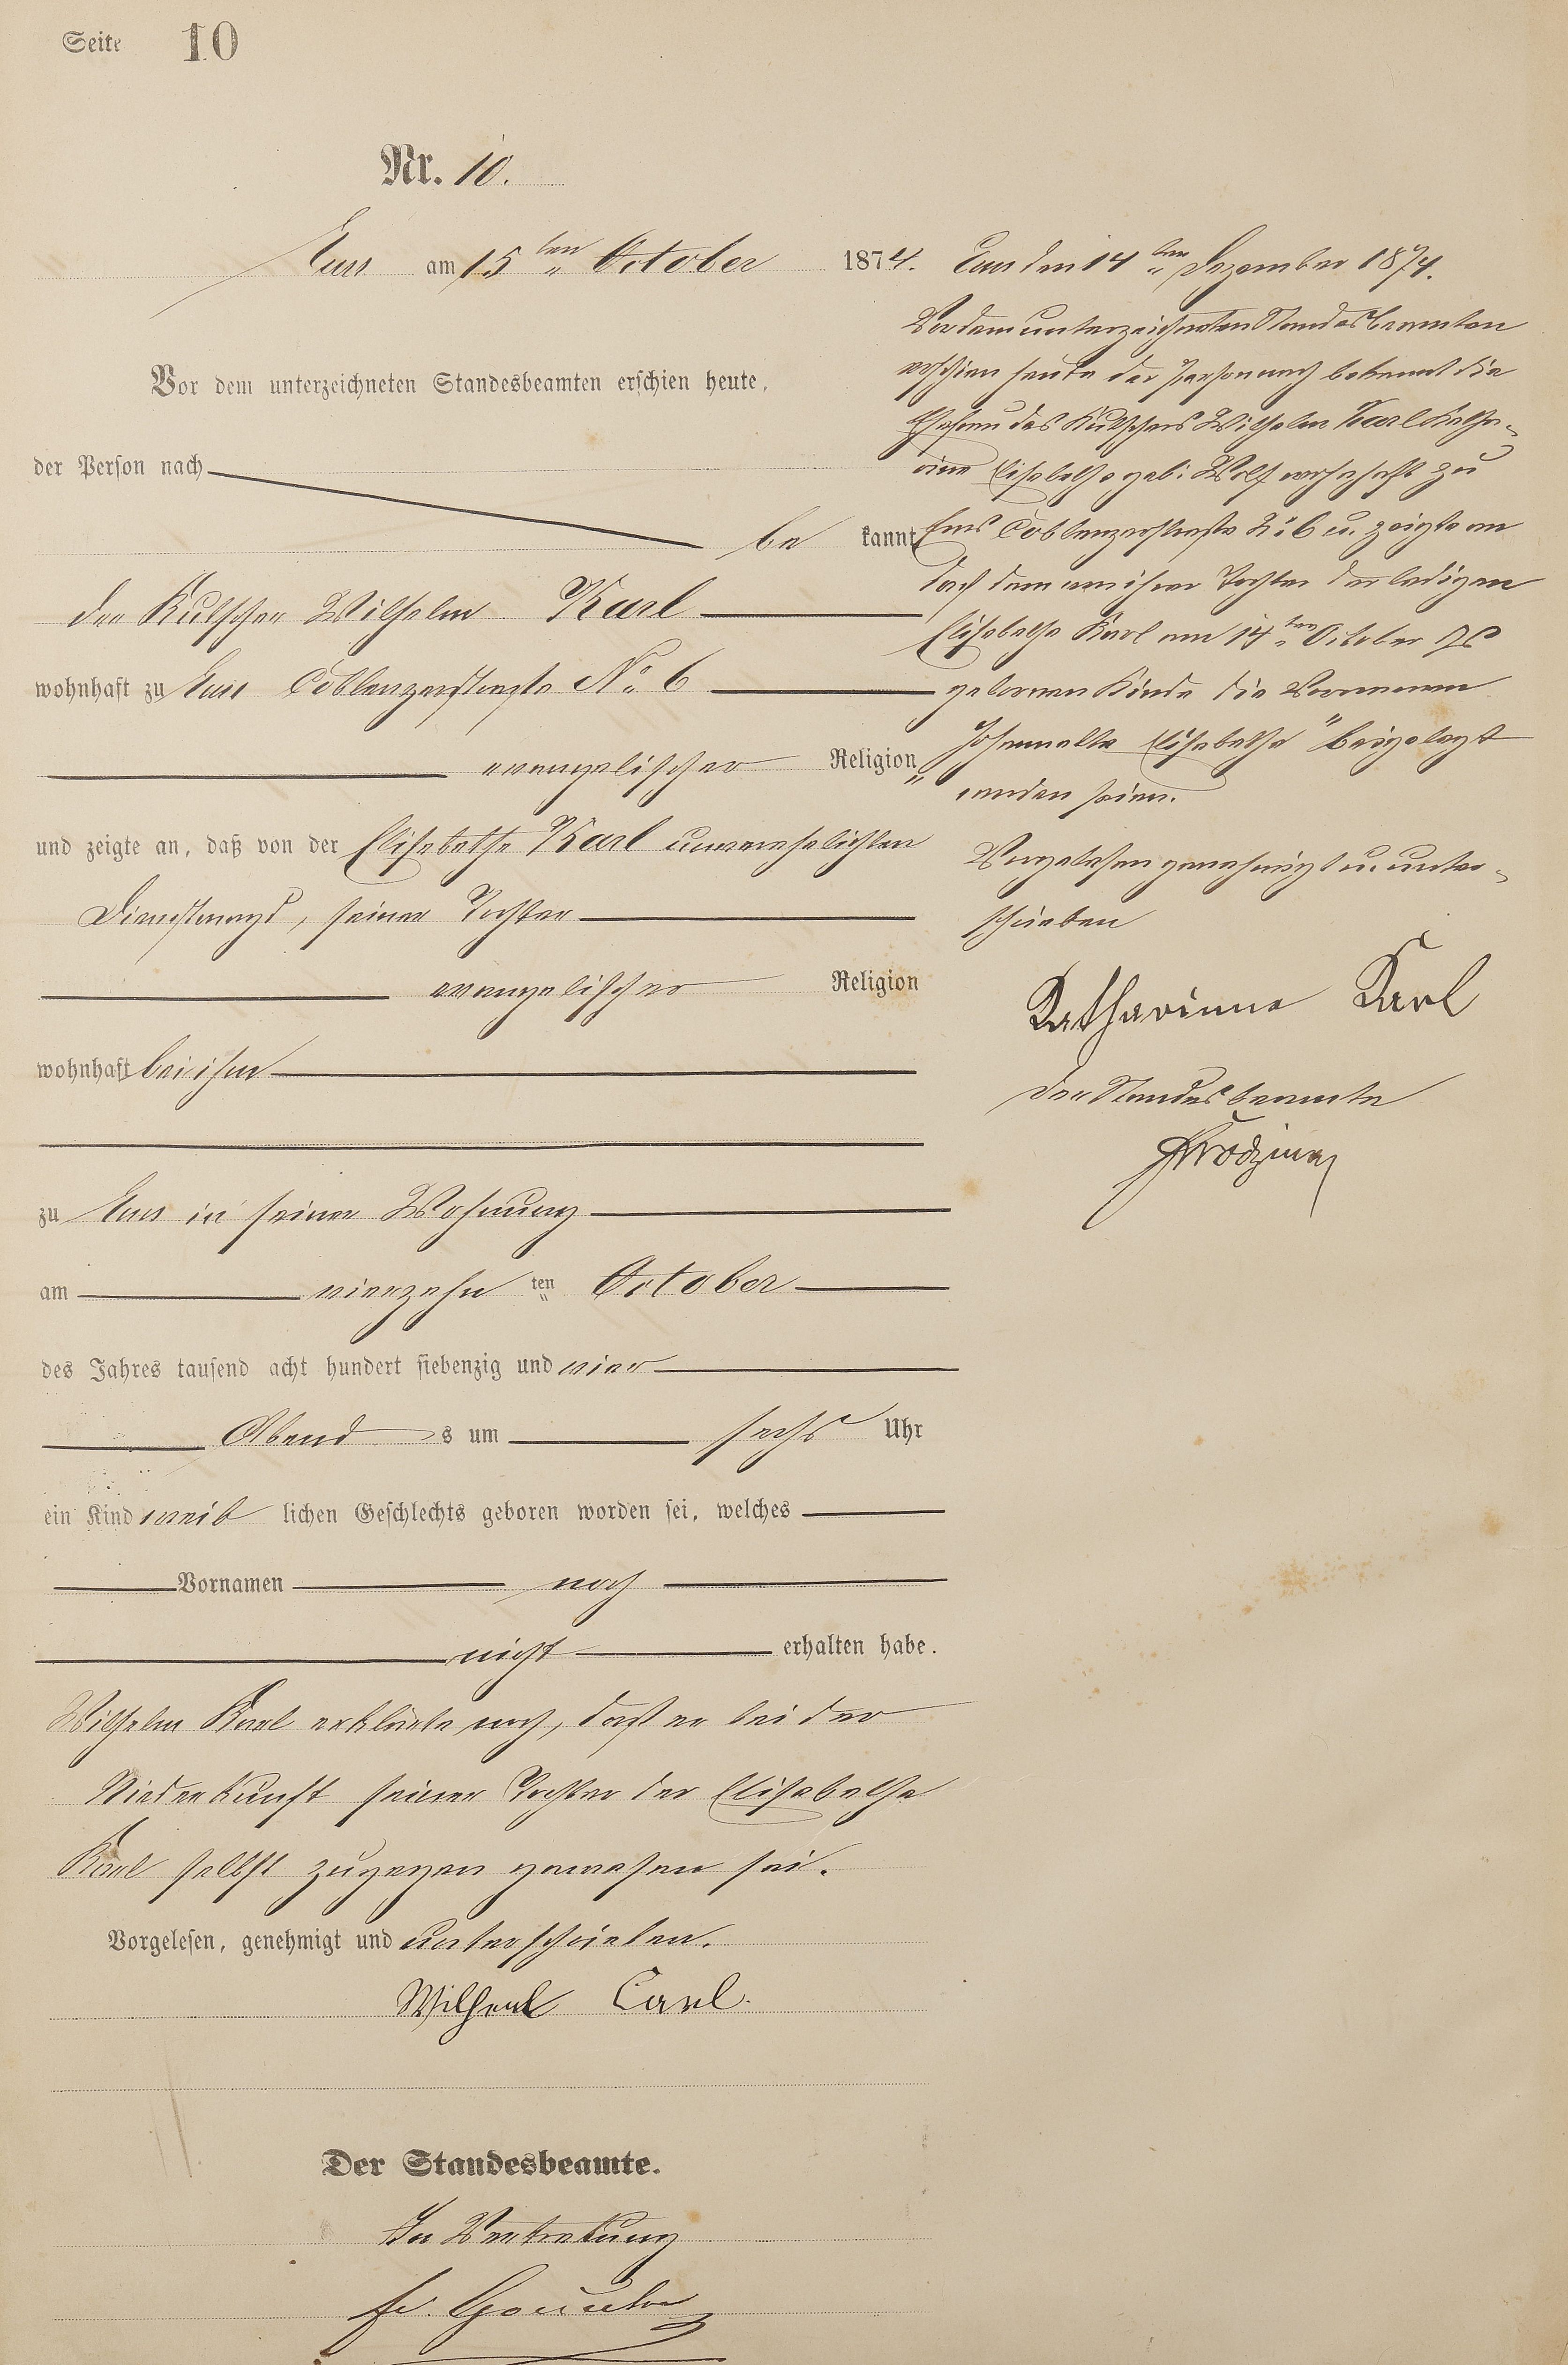 Seite 10
Nr. 10.
Ems am 15ten October 1874.
Vor dem unterzeichneten Standesbeamten erschien heute,
der Person nach
be kannt
der Kutscher Wilhelm Karl
wohnhaft zu Ems Coblenzerstraße No 6
evangelischer Religion
und zeigte an, daß von der Elisabethe Karl unverehelichten
Dienstmagd, seiner Tochter
evangelischer Religion
wohnhaft bei ihm
zu Ems in seiner Wohnung
am vierzehn ten October
des Jahres tausend acht hundert siebenzig und vier
Abend s um sechs Uhr
ein Kind weib lichen Geschlechts geboren worden sei, welches
Vornamen noch
nicht erhalten habe.
Wilhelm Karl erklärte noch, daß er bei der
Niederkunft seiner Tochter der Elisabethe
Karl selbst zugegen gewesen sei.
Vorgelesen, genehmigt und unterschrieben.
Wilhelm Carl.
Der Standesbeamte.
In Vertretung
Ems den 14ten Dezember 1874.
Vor dem unterzeichneten Standesbeamten
erschien heute der Person nach bekannt die
Ehefrau des Kutschers Wilhelm Karl Katha-
rine Elisabethe geb. Wolf wohnhaft zu
Ems Coblenzerstraße No 6 u. zeigte an
daß dem von ihrer Tochter der ledigen
Elisabethe Karl am 14ten October
gebornen Kinde die Vornamen
"Johannette Elisabethe" beigelegt
worden seien.
Vorgelesen genehmigt u. unter-
schrieben
Katharinna Karl
Der Standesbeamte